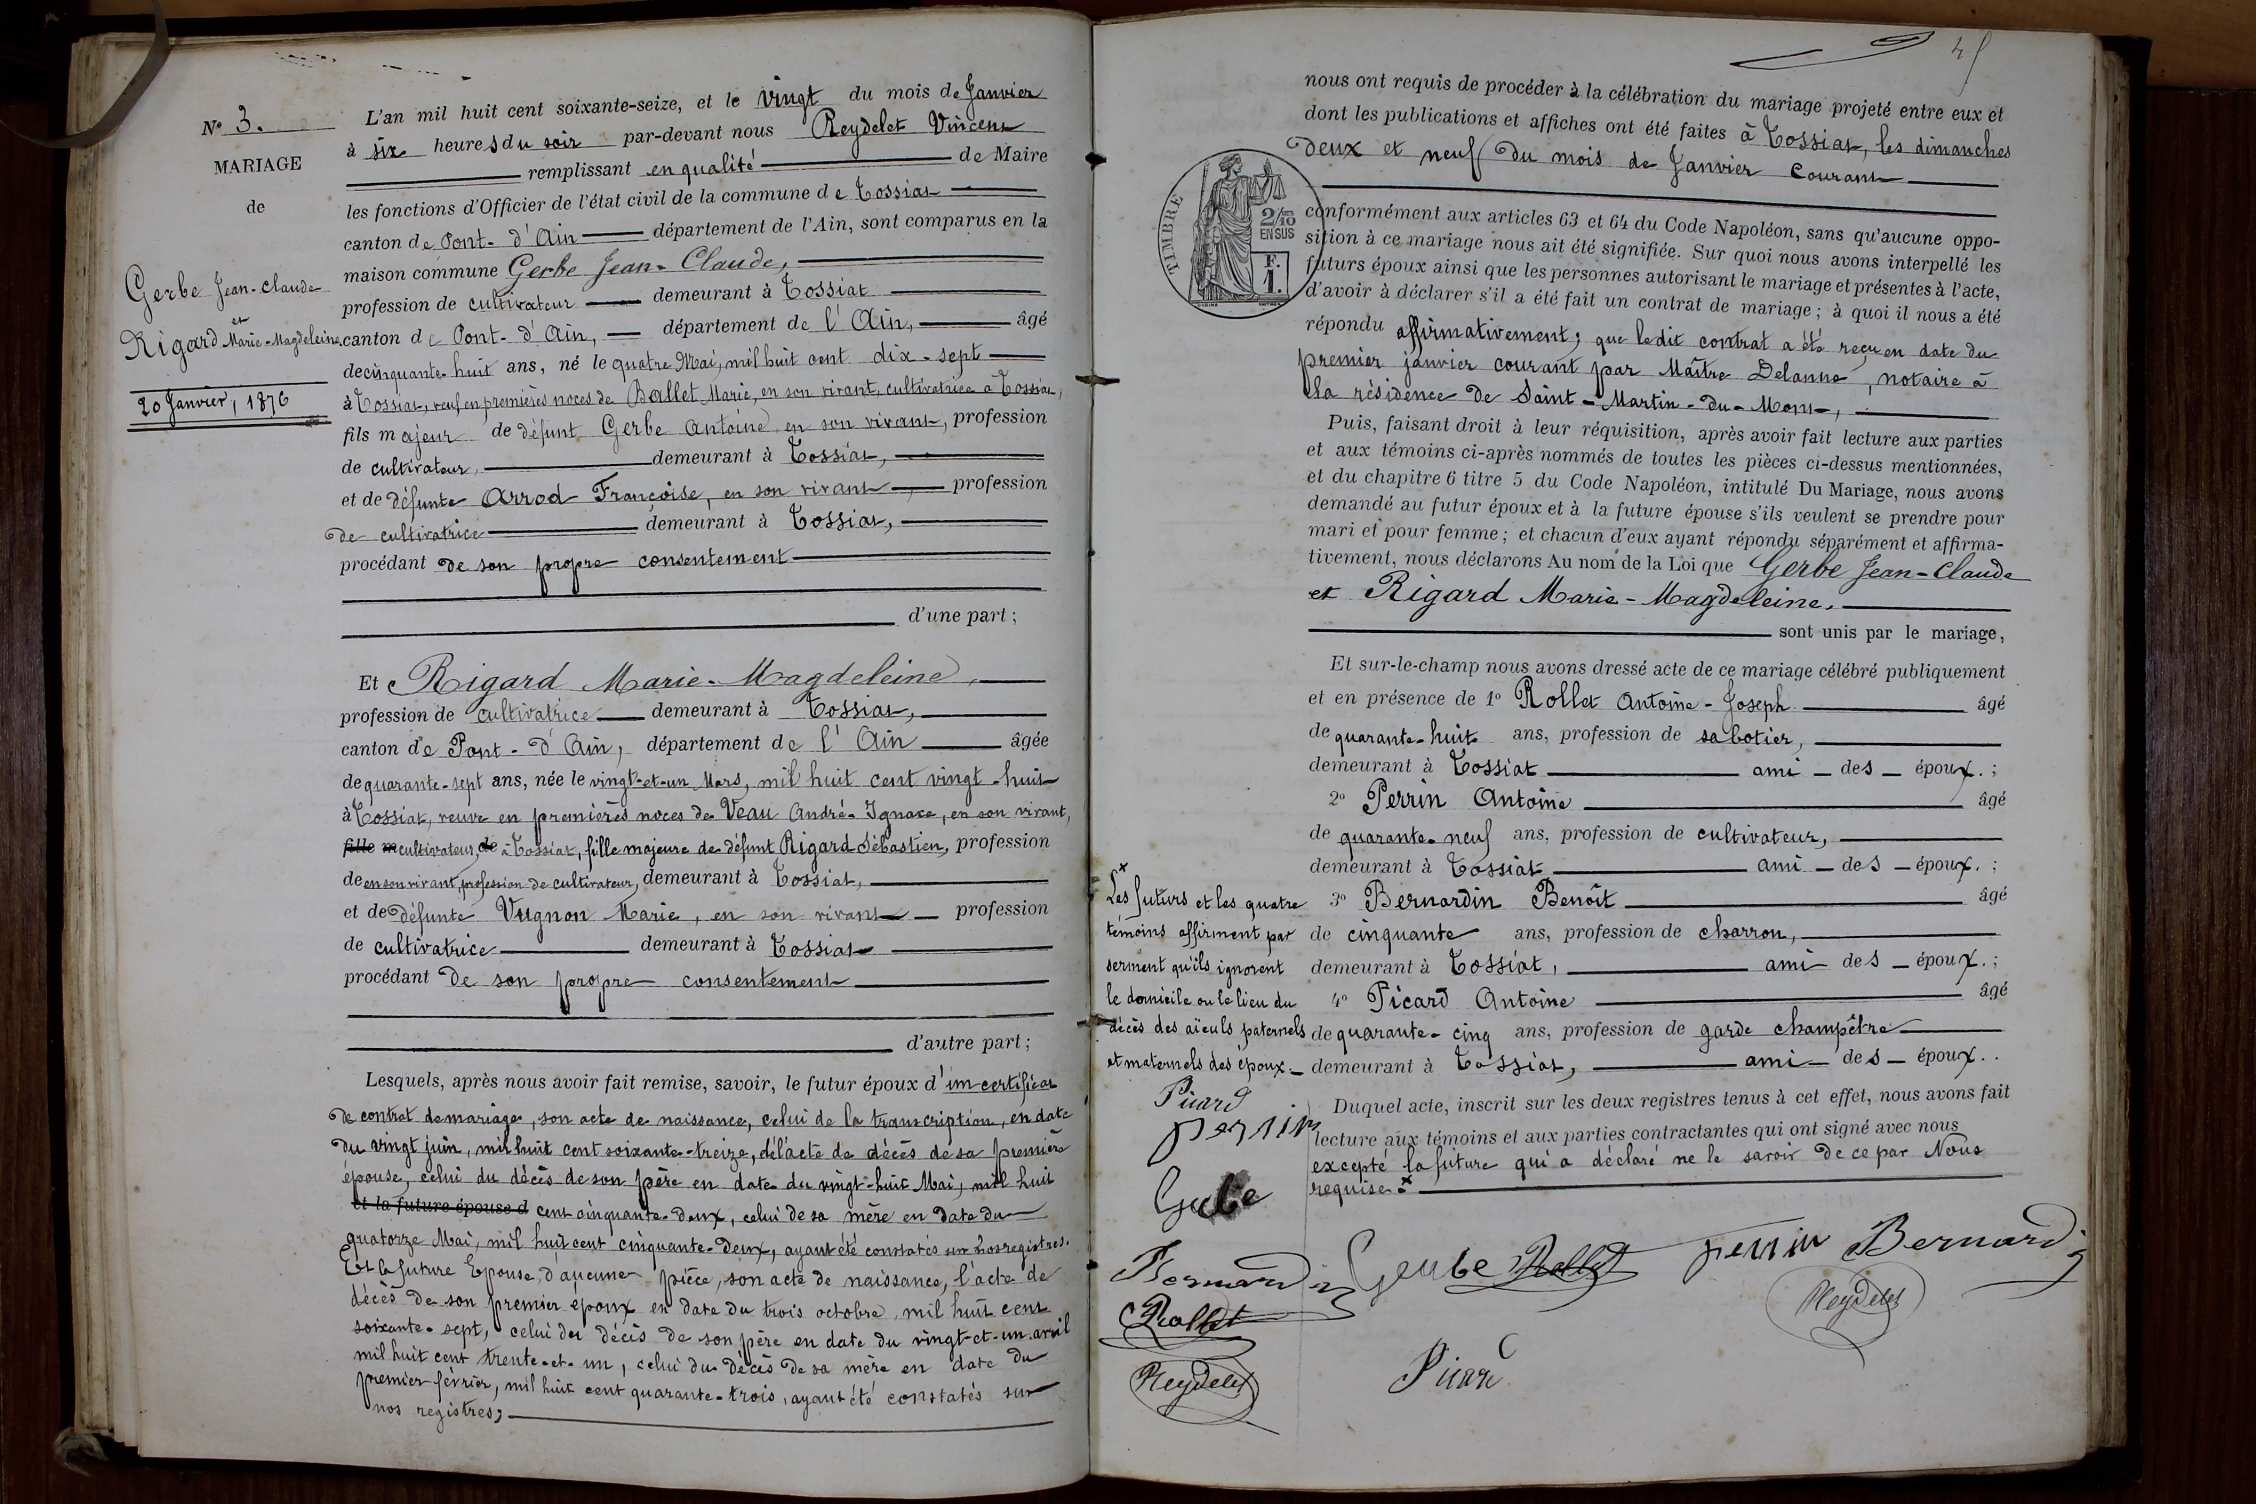 N° 3.
MARIAGE
de
Gerbe Jean-Claude
et
Rigard Marie-Magdeleine.
20 Janvier, 1876
L'an mil huit cent soixante-seize, et le vingt du mois de Janvier
à six heures du soir par-devant nous Reydelet Vincent
remplissant en qualité de Maire
les fonctions d'Officier de l'état civil de la commune de Tossiat
canton de Pont-d'Ain département de l'Ain, sont comparus en la
maison commune Gerbe Jean-Claude,
profession de cultivateur demeurant à Tossiat
canton de Pont-d'Ain, département de l'Ain, âgé
de cinquante-huit ans, né le quatre Mai, mil huit cent dix-sept
à Tossiat, veuf en premières noces de Ballet Marie, en son vivant, cultivatrice à Tossiat,
fils majeur de défunt Gerbe Antoine en son vivant, profession
de cultivateur, demeurant à Tossiat,
et de défunte Arrod Françoise, en son vivant, profession
de cultivatrice demeurant à Tossiat,
procédant de son propre consentement
d'une part ;
Et Rigard Marie-Magdeleine,
profession de cultivatrice demeurant à Tossiat,
canton de Pont-d'Ain, département de l'Ain âgée
de quarante-sept ans, née le vingt-et-un Mars, mil huit cent vingt-huit
à Tossiat, veuve en premières noces de Veau André-Ignace, en son vivant,
fille m cultivateur, de à Tossiat, fille majeure de défunt Rigard Sébastien, profession
de en son vivant, profession de cultivateur, demeurant à Tossiat,
et de défunte Vugnon Marie, en son vivant profession
de cultivatrice demeurant à Tossiat
procédant de son propre consentement
d'autre part ;
Lesquels, après nous avoir fait remise, savoir, le futur époux d'un certificat
de contrat de mariage, son acte de naissance, celui de la transcription, en date
du vingt juin, mil huit cent soixante-treize, de l'acte de décès de sa première
épouse, celui du décès de son père en date du vingt-huit Mai, mil huit
et la future épouse d cent cinquante-deux, celui de sa mère en date du
quatorze Mai, mil huit cent cinquante-deux, ayant été constatés sur nos registres.
Et la future Epouse, d'aucune pièce, son acte de naissance, l'acte de
décès de son premier époux en date du trois octobre, mil huit cent
soixante-sept, celui du décès de son père en date du vingt-et-un avril
mil huit cent trente-et-un, celui du décès de sa mère en date du
premier février, mil huit cent quarante-trois, ayant été constatés sur
nos registres,
nous ont requis de procéder à la célébration du mariage projeté entre eux et
dont les publications et affiches ont été faites à Tossiat, les dimanches
deux et neuf du mois de Janvier courant
TIMBRE
2/10 EN SUS
F. 1.
conformément aux articles 63 et 64 du Code Napoléon, sans qu'aucune oppo-
sition à ce mariage nous ait été signifiée. Sur quoi nous avons interpellé les
futurs époux ainsi que les personnes autorisant le mariage et présentes à l'acte,
d'avoir à déclarer s'il a été fait un contrat de mariage ; à quoi il nous a été
répondu affirmativement ; que le dit contrat a été reçu en date du
premier janvier courant par Maître Delanne, notaire à
la résidence de Saint-Martin-du-Mont,
Puis, faisant droit à leur réquisition, après avoir fait lecture aux parties
et aux témoins ci-après nommés de toutes les pièces ci-dessus mentionnées,
et du chapitre 6 titre 5 du Code Napoléon, intitulé Du Mariage, nous avons
demandé au futur époux et à la future épouse s'ils veulent se prendre pour
mari et pour femme ; et chacun d'eux ayant répondu séparément et affirma-
tivement, nous déclarons Au nom de la Loi que Gerbe Jean-Claude
et Rigard Marie-Magdeleine.
sont unis par le mariage,
Et sur-le-champ nous avons dressé acte de ce mariage célébré publiquement
et en présence de 1° Rollet Antoine-Joseph âgé
de quarante-huit ans, profession de sabotier,
demeurant à Tossiat ami des époux. ;
2° Perrin Antoine âgé
de quarante-neuf ans, profession de cultivateur,
demeurant à Tossiat ami des époux. ;
3° Bernardin Benoît âgé
de cinquante ans, profession de charron,
demeurant à Tossiat, ami des époux. ;
4° Picard Antoine âgé
de quarante-cinq ans, profession de garde champêtre
demeurant à Tossiat, ami des époux. .
Duquel acte, inscrit sur les deux registres tenus à cet effet, nous avons fait
lecture aux témoins et aux parties contractantes qui ont signé avec nous
excepté la future qui a déclaré ne le savoir de ce par Nous
requise. x
x
Les futurs et les quatre
témoins affirment par
serment qu'ils ignorent
le domicile ou le lieu du
décès des aïeuls paternels
et maternels des époux.
Picard
perrin
Gerbe
Bernardin
Rollet
Reydelet
Gerbe Rollet perrin Bernardin
Reydelet
Picard